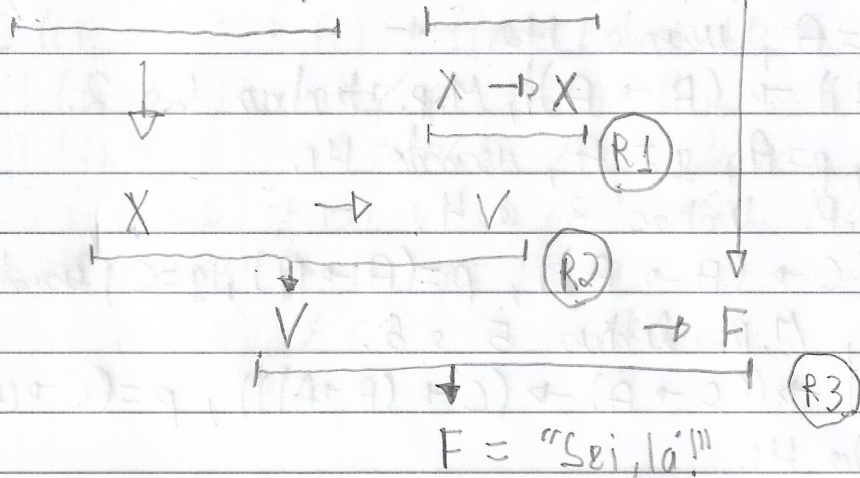 X → X
R1
X → V
R2
V → F
R3
F = "Sei, lá!"